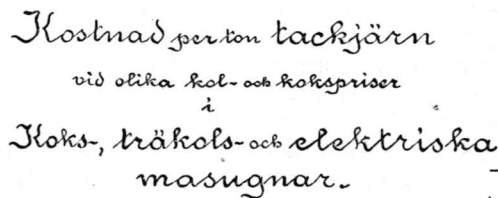 Kostnad per ton tackjärn
vid olika kol- och kokspriser
i
Koks-, träkols- och elektriska
masugnar.